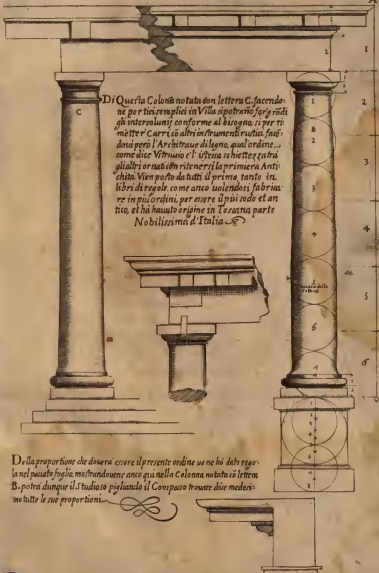 Di Questa Colonna notata con lettera C. facendo=
ne portici semplici in Villa si potranno far grādi
gli intercolunij conforme al bisogno, si per ri=
metter Carri cō altri instrumenti rustici facē=
dovi però l'Architrave di legno, qual ordine
come dice Vitruvio è l'istessa schiettezza trà
gli altri ornati con ritenersi la primiera Anti=
chità. Vien posto da tutti il primo, tanto in
libri di regole, come anco volendosi fabrica=
re in più ordini, per essere il più sodo et an
tico, et hà havuto origine in Toscana parte
Nobilissima d'Italia.
C
B
1
2
3
4
5
6
7
1
2
3
4
5
6
Della proportione che doverà essere il presente ordine ve ne hò dato rego=
la nel passato foglio, mostrandovene anco quì nella Colonna notata cō lettera
B. potrà dunque il Studioso pigliando il Compasso trovare dà se medesi=
mo tutte le sue proportioni.